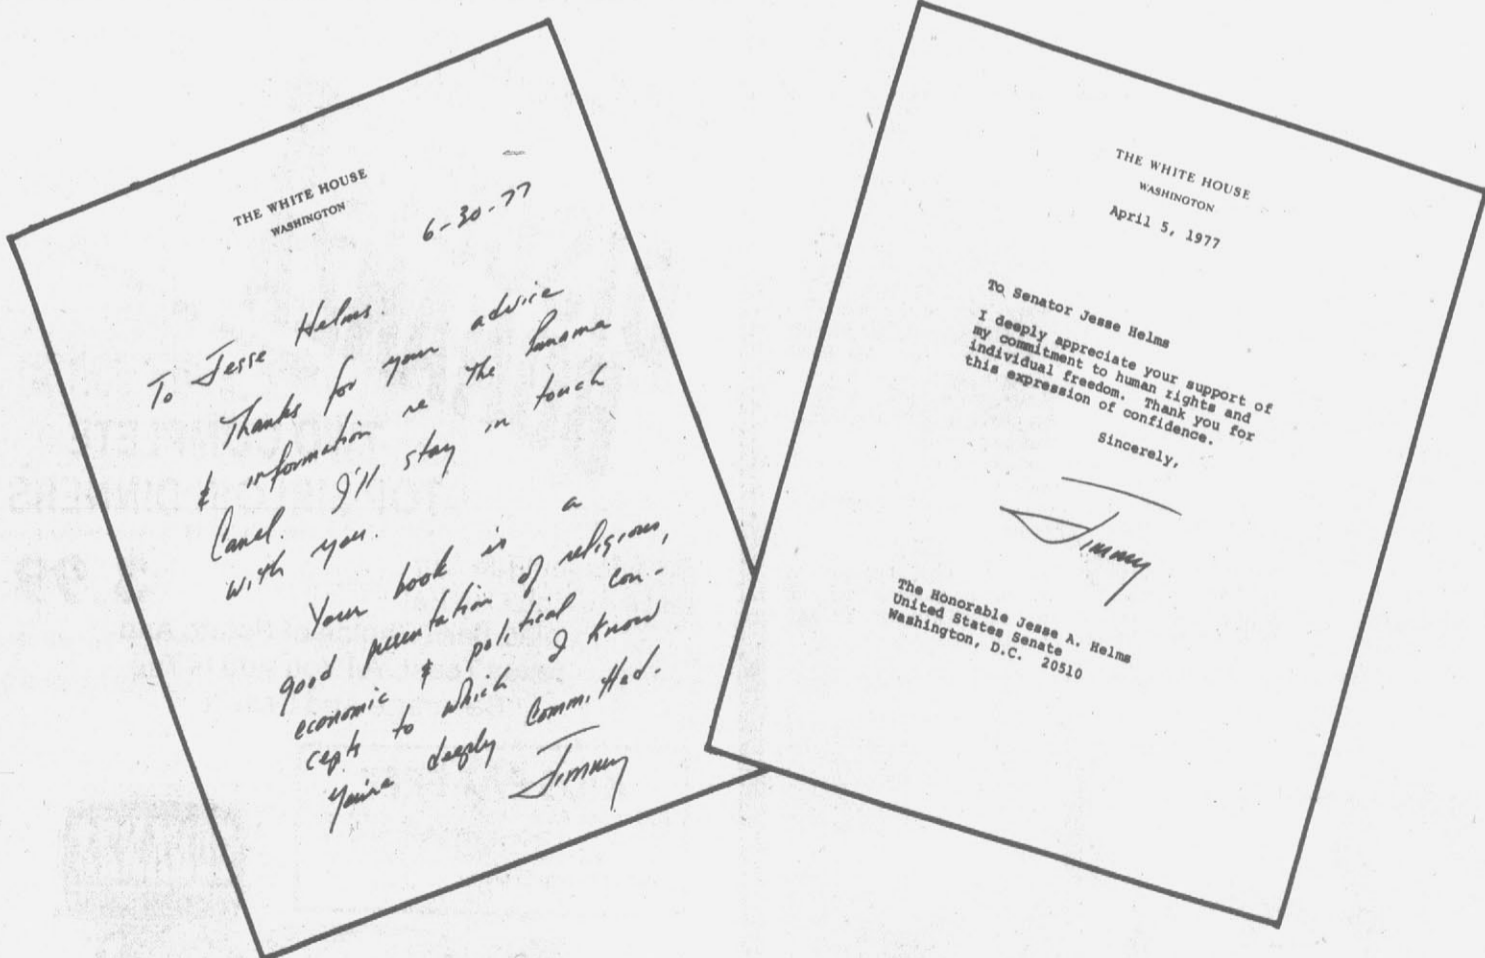 THE WHITE HOUSE
WASHINGTON
6-30-77
To Jesse Helms
Thanks for your advice
& information re the Panama
Canal. I'll stay in touch
with you.
Your book is a
good presentation of religious,
economic & political con-
cepts to which I know
you're deeply committed.
Jimmy
THE WHITE HOUSE
WASHINGTON
April 5, 1977
To Senator Jesse Helms
I deeply appreciate your support of
my commitment to human rights and
individual freedom. Thank you for
this expression of confidence.
Sincerely,
Jimmy
The Honorable Jesse A. Helms
United States Senate
Washington, D.C. 20510